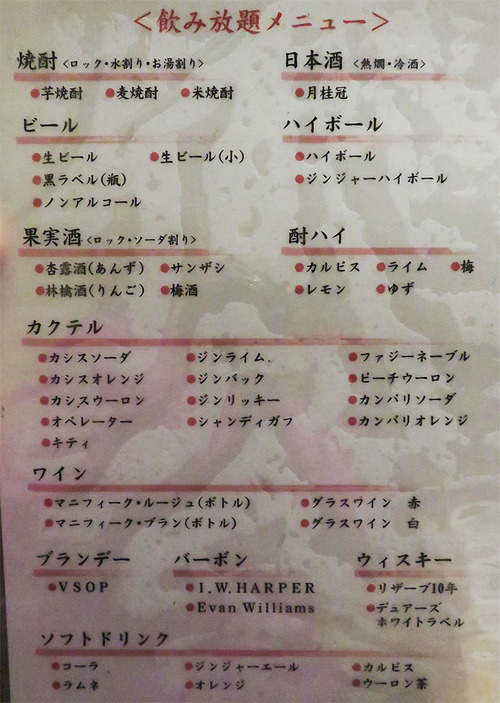 ＜飲み放題メニュー＞
焼酎＜ロック・水割り・お湯割り＞
●芋焼酎 ●麦焼酎 ●米焼酎
日本酒 ＜熱燗・冷酒＞
●月桂冠
ビール
●生ビール ●生ビール(小)
●黒ラベル(瓶)
●ノンアルコール
ハイボール
●ハイボール
●ジンジャーハイボール
果実酒＜ロック・ソーダ割り＞
●杏露酒(あんず) ●サンザシ
●林檎酒(りんご) ●梅酒
酎ハイ
●カルピス ●ライム ●梅
●レモン ●ゆず
カクテル
●カシスソーダ ●ジンライム ●ファジーネーブル
●カシスオレンジ ●ジンバック ●ピーチウーロン
●カシスウーロン ●ジンリッキー ●カンパリソーダ
●オペレーター ●シャンディガフ ●カンパリオレンジ
●キティ
ワイン
●マニフィーク・ルージュ(ボトル) ●グラスワイン 赤
●マニフィーク・ブラン(ボトル) ●グラスワイン 白
ブランデー
●VSOP
バーボン
●I.W.HARPER
●Evan Williams
ウィスキー
●リザーブ10年
●デュアーズ
ホワイトラベル
ソフトドリンク
●コーラ ●ジンジャーエール ●カルピス
●ラムネ ●オレンジ ●ウーロン茶